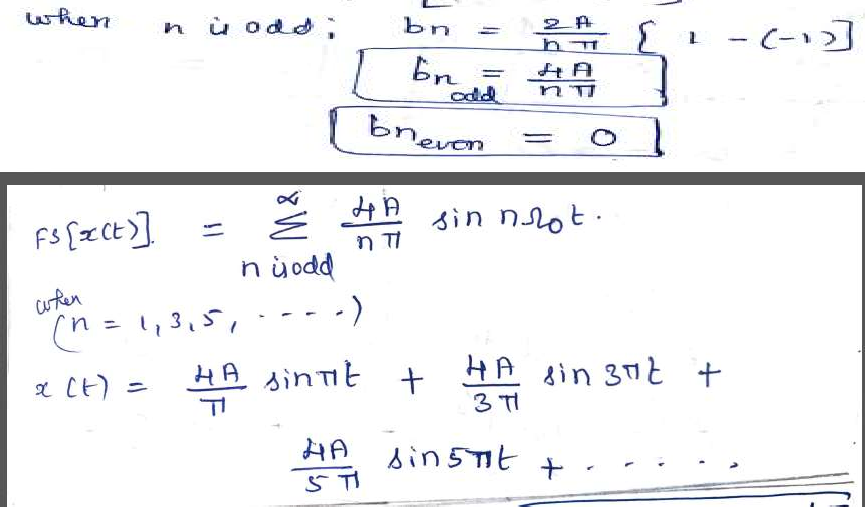 when n is odd; bn = 2A/nπ [1 - (-1)]
bn odd = 4A/nπ
bn even = 0
FS[x(t)]. = ∞ Σ n is odd 4A/nπ sin nΩ0t.
when
(n = 1,3,5, - - - -)
x(t) = 4A/π sin πt + 4A/3π sin 3πt +
4A/5π sin 5πt + - - - - -